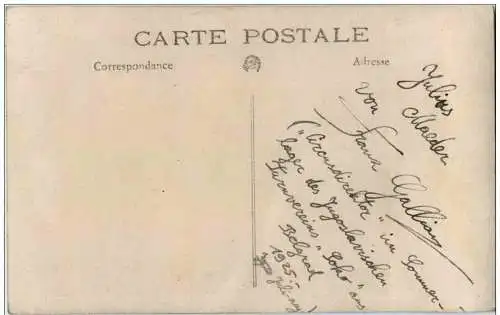 CARTE POSTALE
Correspondance
Adresse
Julius
Maeder
von
Franz
("Circusdirektor" im Sommer-
lager des Jugoslavischen
Turnvereins "Soko" aus
Belgrad
1925